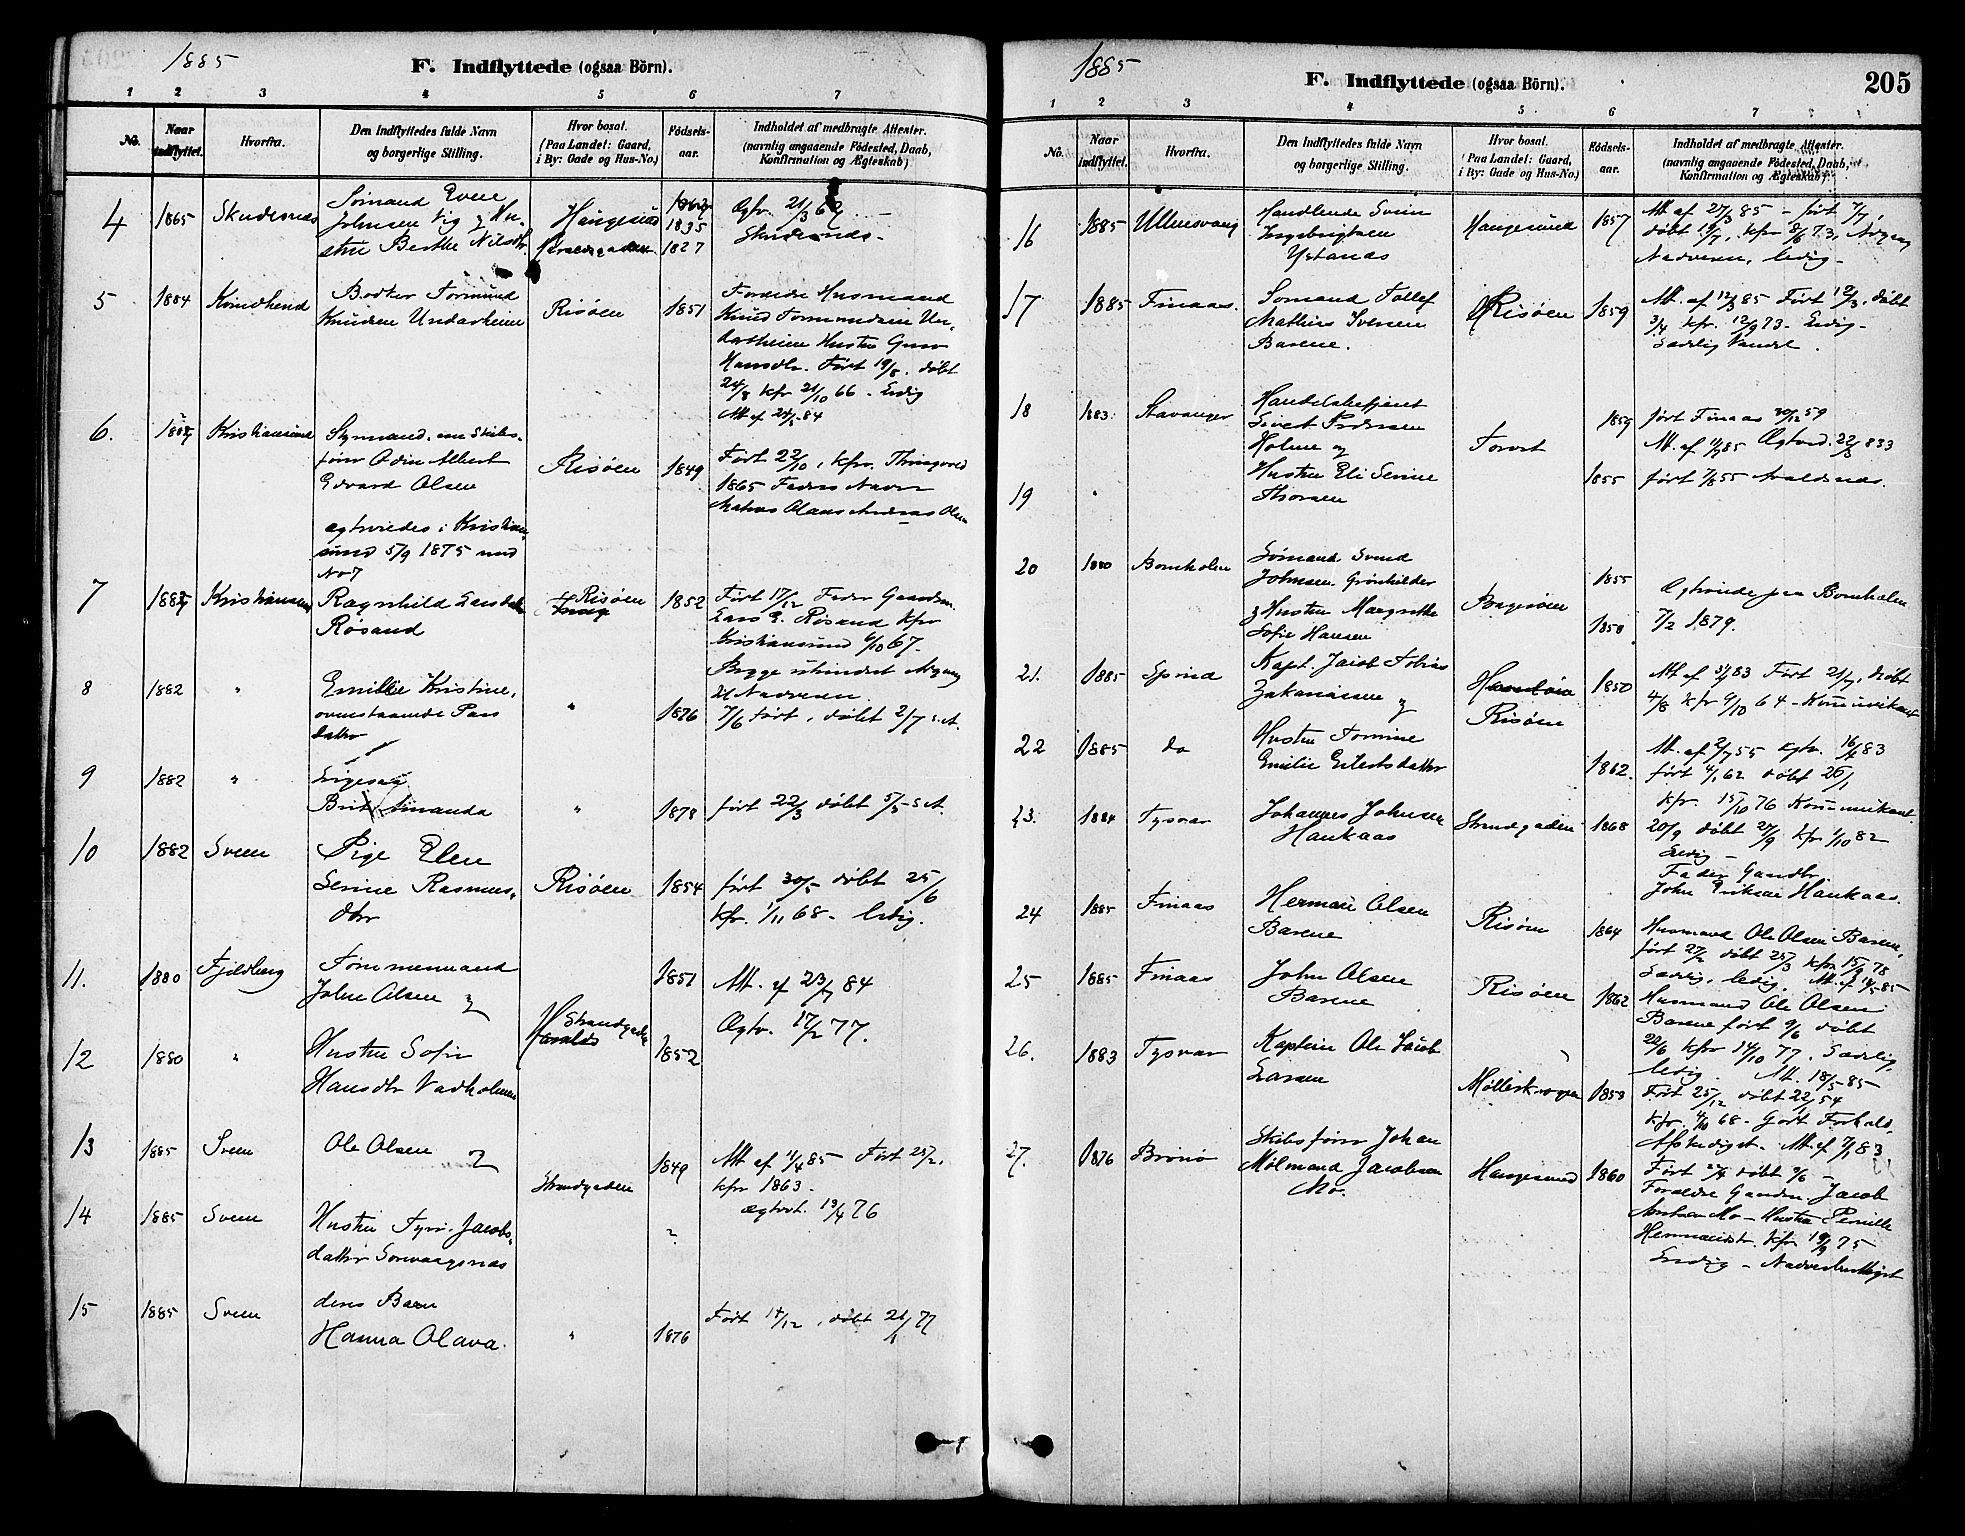 1885
F. Indflyttede (ogsaa Börn).
1 2 3 4 5 6 7
No.
Naar indflyttet.
Hvorfra.
Den Indflyttedes fulde Navn
og borgerlige Stilling.
Hvor bosat.
(Paa Landet: Gaard,
i By: Gade og Hus-No.)
Födsels-
aar.
Indholdet af medbragte Attester.
(navnlig angaaende Födested, Daab,
Konfirmation og Ægteskab)
4 1865 Skudesnæs
Sømand
Johnsen Vig og Hu-
stru Berthe Nilsdtr.
Haugesund
1835
1827
Ægtv. 21/3 62
Skudesnæs
5 1884
Bødker Tormund
Knudsen Undarheim
Risöen 1851
Forældre Husmand
Knud Tormundsen Un-
darheim Hustru
Hansdtr. Født 19/8. døbt
24/8 kfr 21/10 66 - Ledig
6. Kristiansund
Styrmand, nu Skibs-
fører Odin Albert
Edvard Olsen
Risöen 1849
Født 22/10, kfr. Thingvold
1865 Faders Navn
ægtviedes i Kristian-
sund 5/9 1875 med
No 7
7 Kristiansund
Ragnhild Larsdatter
Røsand
Risöen 1852
Født 17/12 Fader Gaardm.
Lars E. Røsand kfr
Kristiansund 6/10 67.
Begge uhindret Adgang
til Nadveren
8 1882 "
Emilie Kristine,
ovenstaaende Pars
datter
" 1876
7/6 født, døbt 2/7 s.A.
9 1882 "
Ligesaa
Brit Amanda
" 1878 født 22/3 døbt 5/5 s.A.
10 1882 Sveen
Pige Elen
Serine Rasmus-
dtr
Risöen 1854
født 30/5 døbt 25/6
kfr. 1/11 68 - ledig.
11. 1880 Fjeldberg
Tømmermand
John Olsen og
1851 Att. af 23/7 84
Strandgaden
Ægtv. 17/2 77.
12 1880 "
Hustru Sofie
Hansdtr Vadholmen
1852
13 1885 Sveen
Ole Olsen og
Strandgaden
1849
Att af 11/4 85 Født 25/2.
kfr 1863.
ægtvet. 13/4 76
14 1885 Sveen
Hustru Jacobs-
datter
15 1885 Sveen
deres Barn
Hanna Olava.
" 1876
Født 14/12, døbt 21/1 77
1885
F. Indflyttede (ogsaa Börn).
205
1 2 3 4 5 6 7
No.
Naar indflyttet.
Hvorfra.
Den Indflyttedes fulde Navn
og borgerlige Stilling.
Hvor bosat.
(Paa Landet: Gaard,
i By: Gade og Hus-No.)
Födsels-
aar.
Indholdet af medbragte Attester.
(navnlig angaaende Födested, Daab,
Konfirmation og Ægteskab)
16 1885 Ullensvang
Handlende Svein
Ingebrigtsen
Ystanæs
Haugesund 1857
Att af 27/3 85 - født 7/7,
døbt 19/7, kfr 8/6 73, Adgang
Nadveren, ledig -
17 1885 Finaas.
Sømand Tollef
Mathias Iversen
Barene.
Risöen 1859
Att. af 12/3 85 Født 12/3, døbt
3/4 kfr. 12/9 73 - Ledig -
Sædelig Vandel.
18 1883 Stavanger
Handelsbetjent
Sivert Pedersen
Holme og
Torvet
1859
født Finaas 30/12 59
19 "
Hustru Eli Serine
Thorsen
1855 født 7/8 55 Avaldsnæs.
20 1880 Bornholm
Sømand Svend
Johnsen
og Hustru Margrethe
Sofie Hansen
1855
1850
Ægteviede paa Bornholm
7/2 1879.
21. 1885 Spind
Kapt. Jacob Tobias
Zakariassen og
Risöen
1850
Født 21/7, døbt
4/8 kfr 9/10 64 - Kommunikant
22 1885 do
Hustru Tomine
Emilie Eilertsdatter
1862.
Att. af 2/7 55 ægtv. 16/4 83
født 4/1 62 døbt 26/1
kfr. 15/10 76 Kommunikant.
23. 1884 Tysvær
Johannes Johnsen
Haukaas
Strandgaden 1868
20/9 døbt 27/9 kfr 1/10 82
Ledig -
Fader Gaardbr.
John Eriksen Haukaas.
24 1885 Finaas
Herman Olsen
Barene
Risöen 1864
Husmand Ole Olsen Barene,
født 27/2 døbt 25/3 kfr 15/9 78
Sædelig, ledig. Att. af 14/5-85
25 1885 Finaas
John Olsen
Barene
Risöen 1862
Husmand Ole Olsen
Barene født 9/6 døbt
22/6 kfr 14/10 77. Sædelig,
ledig. Att. 18/5-85
26. 1883 Tysvær
Kaptein Ole Jacob
Larsen
1853
Født 25/12 døbt 22/1 54
kfr. 4/10 68 - gjort Forhold.
Afskediget. Att. af 7/1 83
27. 1876 Brønø
Skibsfører Johan
Mølmand Jacobsen
Mo.
Haugesund 1860
Forældre Gaardm. Jacob
Mo - Hustru Pernille
kfr. 19/9 75
Ledig - Nadverberettiget